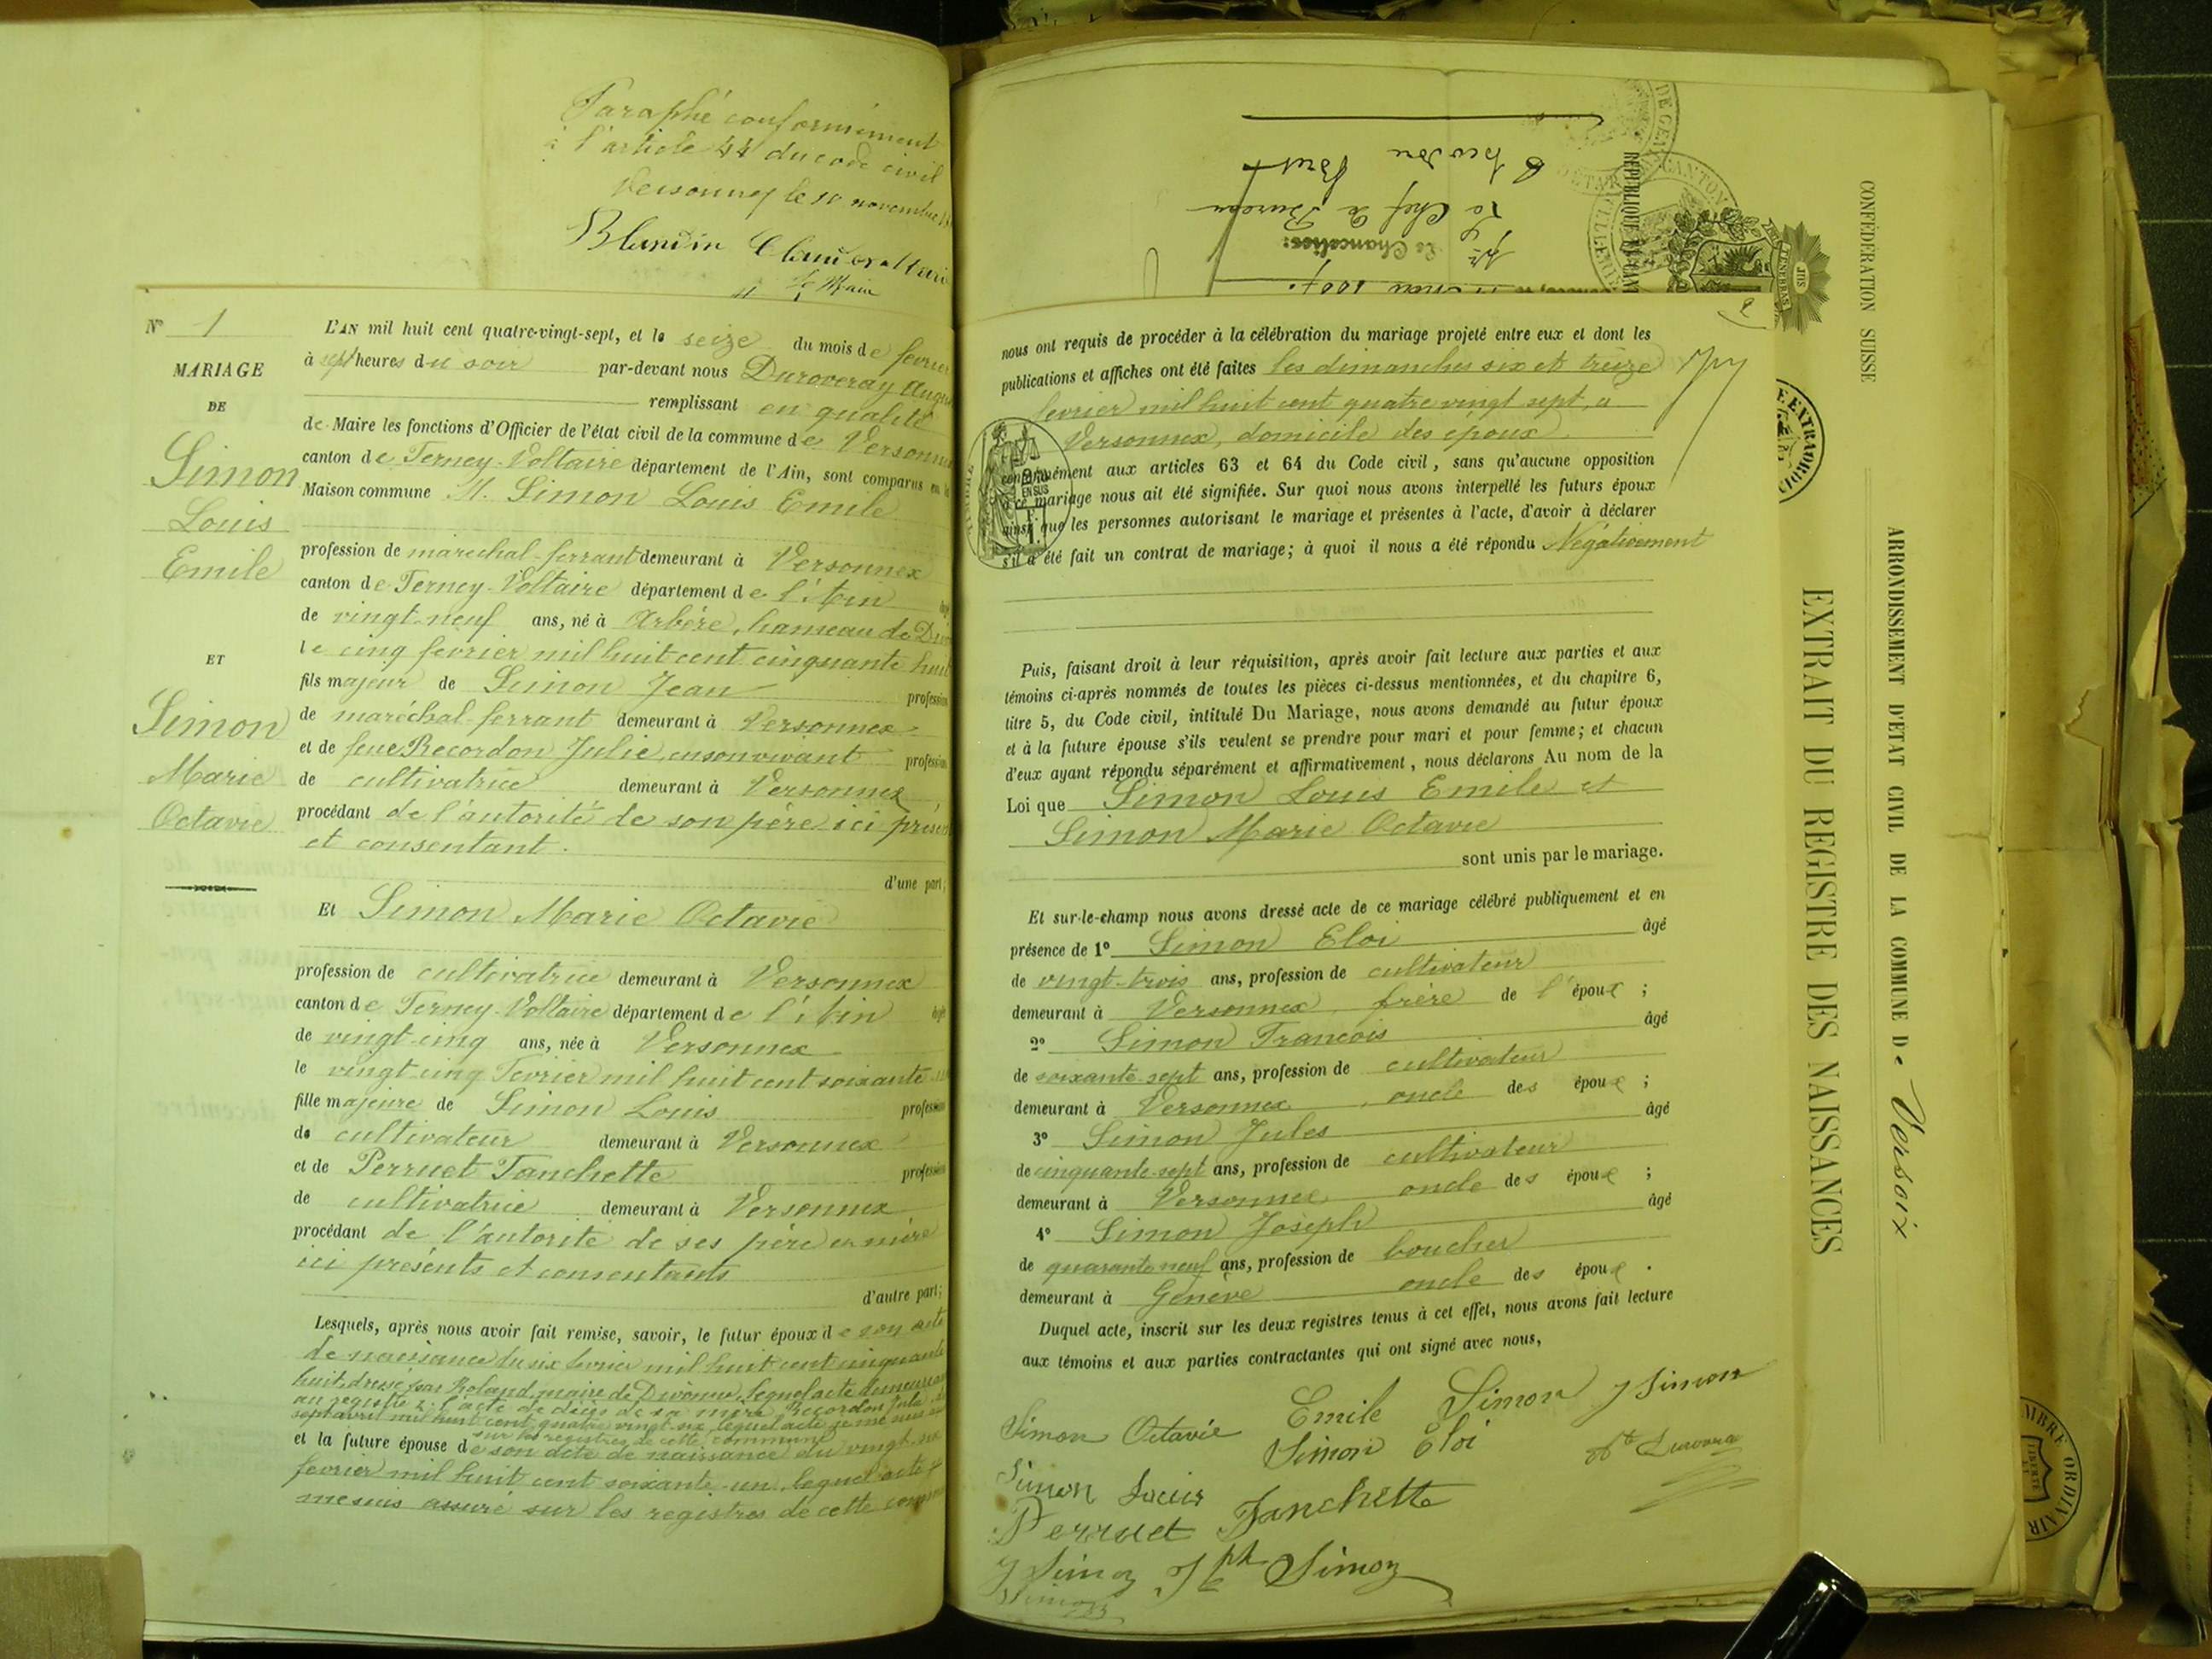 Paraphé conformément
à l'article 44 du code civil
Versonnex le 10 novembre
Blandin Claude
Le Maire
N° 1
MARIAGE
DE
Simon
Louis
Emile
ET
Simon
Marie
Octavie
L'AN mil huit cent quatre-vingt-sept, et le seize du mois de fevrier
à sept heures du soir par-devant nous Duroveray Augu
remplissant en qualité
de Maire les fonctions d'Officier de l'état civil de la commune de Versonnex
canton de Ferney-Voltaire département de l'Ain, sont comparus en la
Maison commune M. Simon Louis Emile
profession de maréchal-ferrant demeurant à Versonnex
canton de Ferney-Voltaire département de l'Ain âgé
de vingt-neuf ans, né à Arbère, hameau de Div
le cinq fevrier mil huit cent cinquante huit
fils majeur de Simon Jean profession
de maréchal-ferrant demeurant à Versonnex
et de feue Recordon Julie, en son vivant profession
de cultivatrice demeurant à Versonnex
procédant de l'autorité de son père ici présent
et consentant.
d'une part;
Et Simon Marie Octavie
profession de cultivatrice demeurant à Versonnex
canton de Ferney-Voltaire département de l'Ain âgé
de vingt-cinq ans, née à Versonnex
le vingt cinq Fevrier mil huit cent soixante un
fille majeure de Simon Louis profession
de cultivateur demeurant à Versonnex
et de Perruet Fanchette profession
de cultivatrice demeurant à Versonnex
procédant de l'autorité de ses père et mère
ici présents et consentants
d'autre part;
Lesquels, après nous avoir fait remise, savoir, le futur époux de son acte
de naissance du six fevrier mil huit cent cinquante
huit, dressé par Roland, maire de Divonne, lequel acte demeurera
au registre 2: l'acte de décès de sa mère Recordon Julie
sept avril mil huit cent quatre vingt-six, lequel acte je me suis
sur les registres de cette commune
et la future épouse de son acte de naissance du vingt six
fevrier mil huit cent soixante-un, lequel acte je
me suis assuré sur les registres de cette commune
Le Chancelier:
Le Chef de Bureau
Théodore Bret
nous ont requis de procéder à la célébration du mariage projeté entre eux et dont les
publications et affiches ont été faites les dimanches six et treize
fevrier mil huit cent quatre vingt sept, à
Versonnex, domicile des époux
conformément aux articles 63 et 64 du Code civil, sans qu'aucune opposition
à ce mariage nous ait été signifiée. Sur quoi nous avons interpellé les futurs époux
ainsi que les personnes autorisant le mariage et présentes à l'acte, d'avoir à déclarer
s'il a été fait un contrat de mariage; à quoi il nous a été répondu Négativement
Puis, faisant droit à leur réquisition, après avoir fait lecture aux parties et aux
témoins ci-après nommés de toutes les pièces ci-dessus mentionnées, et du chapitre 6,
titre 5, du Code civil, intitulé Du Mariage, nous avons demandé au futur époux
et à la future épouse s'ils veulent se prendre pour mari et pour femme; et chacun
d'eux ayant répondu séparément et affirmativement, nous déclarons Au nom de la
Loi que Simon Louis Emile et
Simon Marie Octavie
sont unis par le mariage.
Et sur-le-champ nous avons dressé acte de ce mariage célébré publiquement et en
présence de 1° Simon Eloi âgé
de vingt-trois ans, profession de cultivateur
demeurant à Versonnex, frère de l'époux;
2° Simon François âgé
de soixante-sept ans, profession de cultivateur
demeurant à Versonnex, oncle des époux;
3° Simon Jules âgé
de cinquante-sept ans, profession de cultivateur
demeurant à Versonnex oncle des époux;
4° Simon Joseph âgé
de quarante neuf ans, profession de boucher
demeurant à Genève oncle des époux.
Duquel acte, inscrit sur les deux registres tenus à cet effet, nous avons fait lecture
aux témoins et aux parties contractantes qui ont signé avec nous,
Simon Octavie Emile Simon J Simon
Simon Eloi
Simon Louis
Perruet Fanchette
J Simon Jph Simon
Simon
CONFÉDÉRATION SUISSE
ARRONDISSEMENT D'ÉTAT CIVIL DE LA COMMUNE De Versoix
EXTRAIT DU REGISTRE DES NAISSANCES